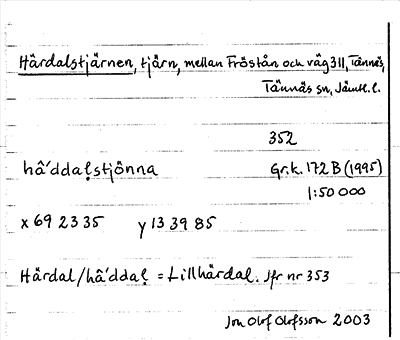 Härdalstjärnen, tjärn, mellan Fröstån och väg 311, Tännäs,
Tännäs sn, Jämtl. l.
352
hâ´ddaḷstjônna
Gr.k. 172 B (1995)
1:50 000
x 69 23 35 y 13 39 85
Härdal/hâ´ddaḷ = Lillhärdal. Jfr nr 353
Jon Olof Olofsson 2003